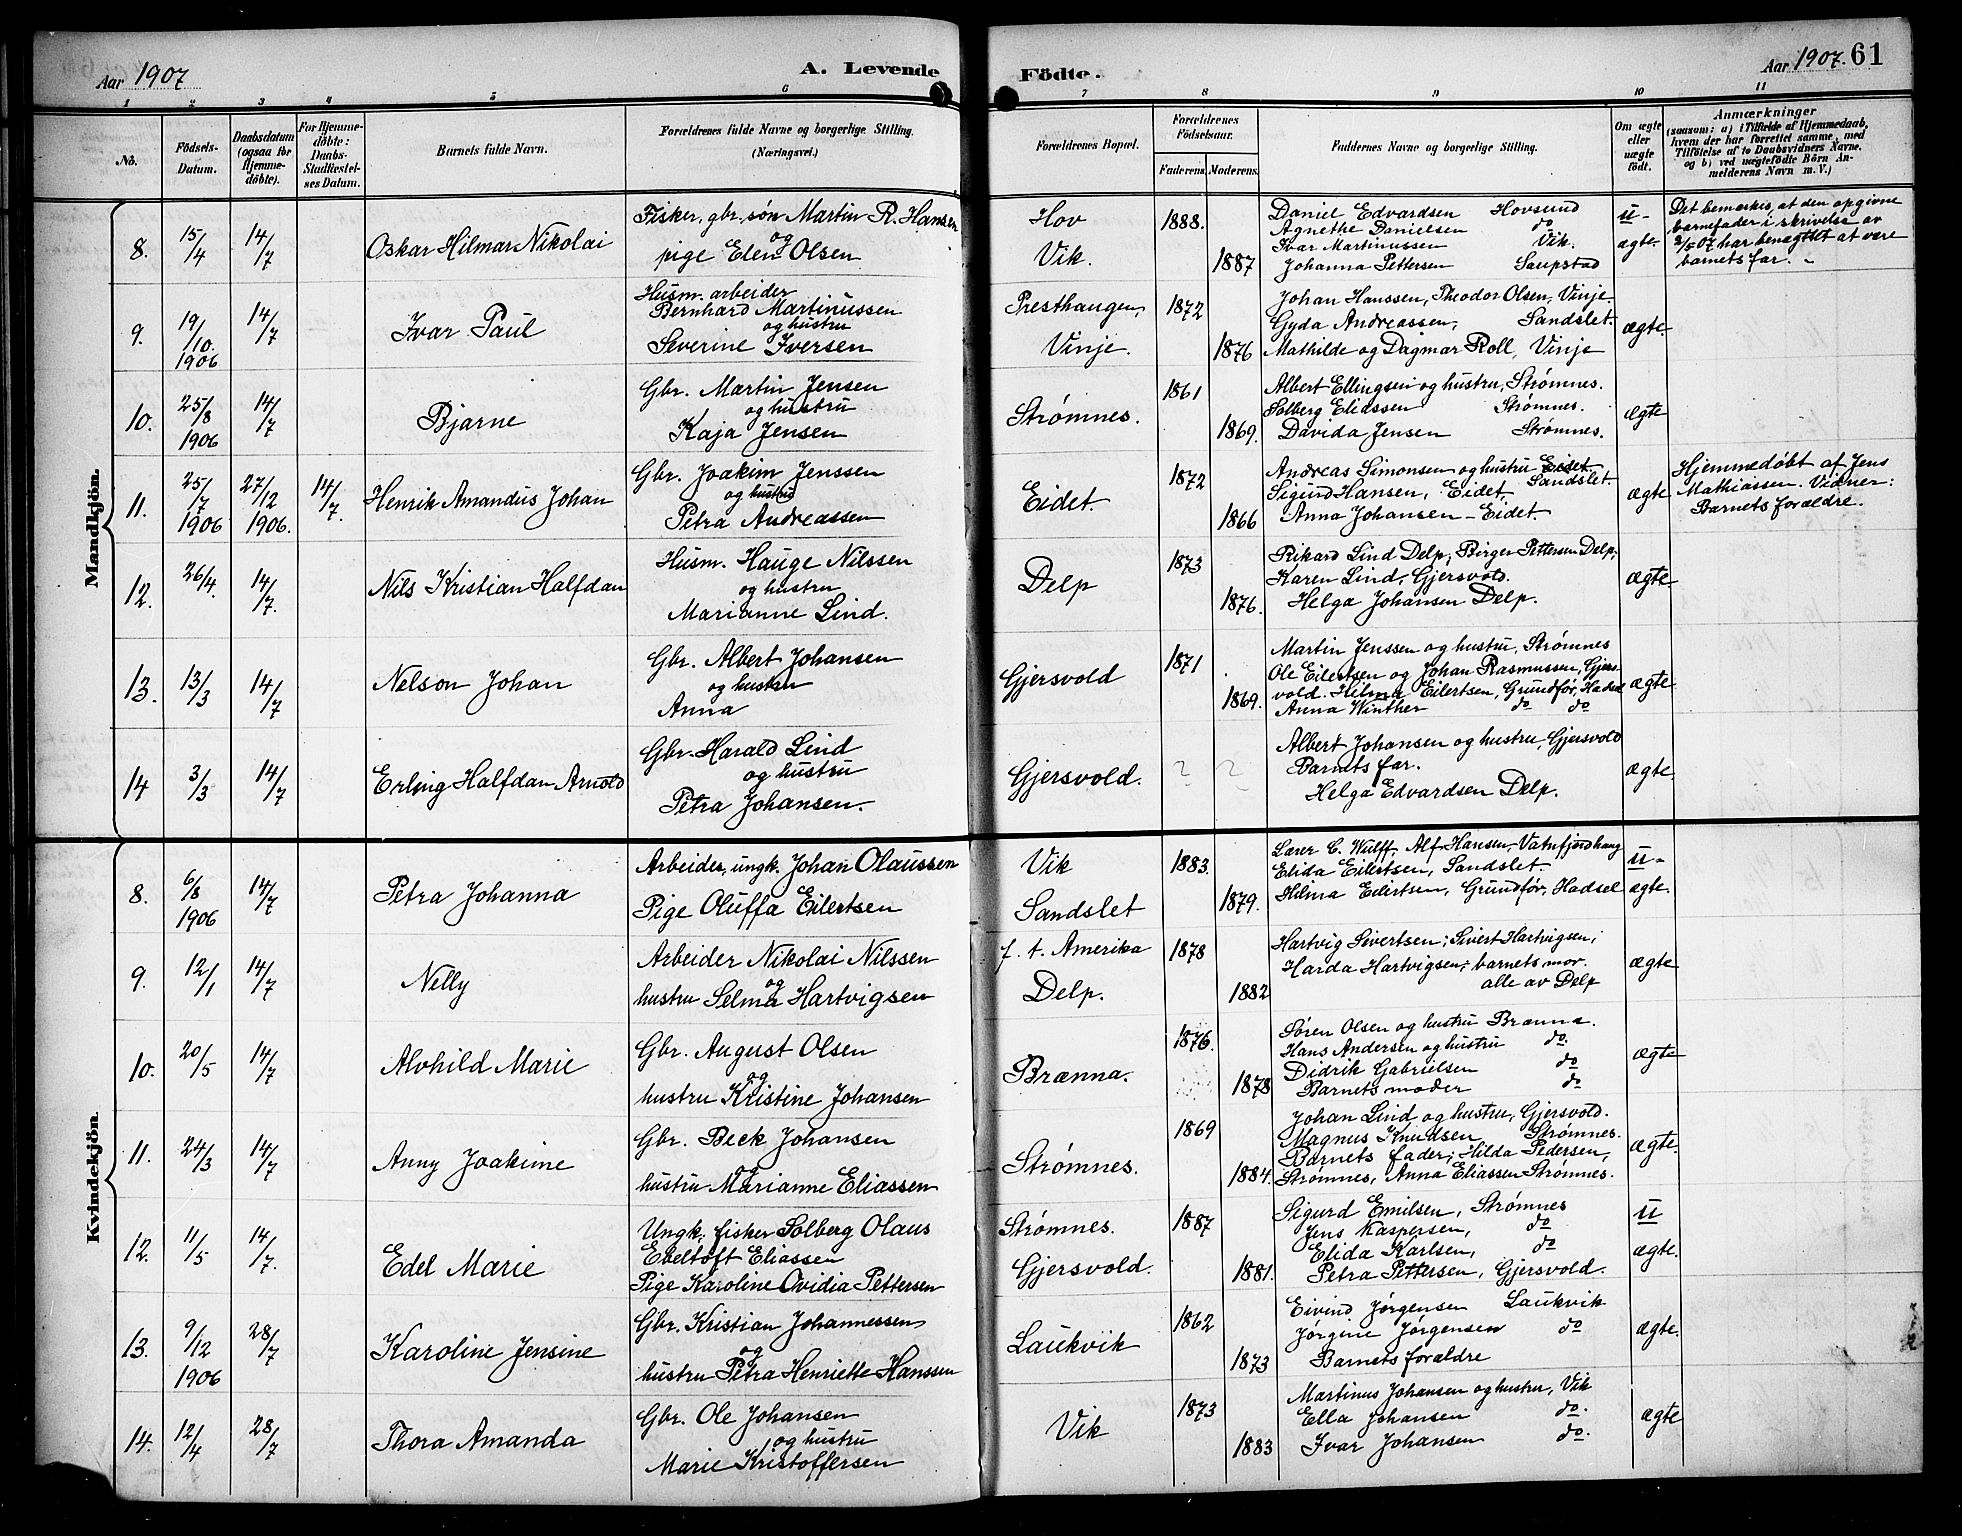 Aar 1907
A. Levende
Födte.
Aar 1907. 61
1 2 3 4 5 6 7 8 9 10 11
No.
Födsels-
Datum.
Daabsdatum
(ogsaa for
Hjemme-
döbte).
For Hjemme-
döbte:
Daabs-
Stadfæstel-
ses Datum.
Barnets fulde Navn.
Forældrenes fulde Navne og borgerlige Stilling.
(Næringsvei.)
Forældrenes Bopæl.
Forældrenes
Födselsaar.
Faderens. Moderens.
Faddernes Navne og borgerlige Stilling.
Om ægte
eller
uægte
födt.
Anmærkninger
(saasom: a) i Tilfælde af Hjemmedaab,
hvem der har forrettet samme, med
Tilföielse af to Daabsvidners Navne.
og b) ved uægtefödte Börn An-
melderens Navn m. V.)
Mandkjön.
8. 15/4 14/7 Oskar Hilmar Nikolai
Fisker, gbr. søn Martin R. Hansen
og
pige Elen Olsen
Hov
Vik.
1888.
1887
Daniel Edvardsen Hovsund
Agnethe Danielsen do
Ivar Martinussen Vik.
Johanna Pettersen Saupstad
u-
ægte.
Det bemerkes, at den opgivne
barnefader i skrivelse av
2/5 07 har benægtet at være
barnets far. -
9. 19/10. 1906 14/7 Ivar Paul
Husm. arbeider
Bernhard Martinussen
og hustru
Severine Iversen
Presthaugen,
Vinje.
1872
1876
Johan Hanssen, Theodor Olsen, Vinje.
Gyda Andreassen, Sandslet.
Mathilde og Dagmar Roll, Vinje
ægte.
10. 25/8 1906 14/7 Bjarne
Gbr. Martin Jensen
og hustru
Kaja Jensen
Strømnes.
1861
1869.
Albert Ellingsen og hustru, Strømnes.
Solberg Eliassen Strømnes.
Davida Jensen Strømnes.
ægte
11. 25/7 1906 27/12 1906. 14/7. Henrik Amandus Johan
Gbr. Joakim Jenssen
og hustru
Petra Andreassen
Eidet.
1872
1866
Andreas Simonsen og hustru Eidet
Sandslet.
Sigurd Hansen, Eidet
Anna Johansen - Eidet.
ægte
Hjemmedøbt af Jens
Mathiassen. Vidner:
Barnets forældre.
12. 26/4. 14/7. Nils Kristian Halfdan
Husm. Hauge Nilssen
og hustru
Marianne Lind.
Delp
1873
1876.
Rikard Lind Delp; Birger Pettersen Delp;
Karen Lind, Gjersvold.
Helga Johansen Delp.
ægte.
13. 13/3 14/7 Nelson Johan
Gbr. Albert Johansen
og hustru
Anna
Gjersvold
1871
1869.
Martin Jenssen og hustru, Strømnes
Ole Eilertsen og Johan Rasmussen, Gjers-
vold. Hilma Eilertsen, Grundfør, Hadsel
Anna Winther do do
ægte
14 3/3 14/7 Erling Halfdan Arnold
Gbr. Harald Lind
og hustru
Petra Johansen.
Gjersvold.
? ?
Albert Johansen og hustru, Gjersvold
Barnets far.
Helga Edvardsen Delp.
ægte
Kvindekjön.
8. 6/8 1906 14/7 Petra Johanna
Arbeider, ungk. Johan Olaussen
Pige Oluffa Eilertsen
Vik
Sandslet
1883.
1879.
Lærer C. Wulff. Alf Hansen, Vatnfjordhaug
Elida Eilertsen, Sandslet.
Hilma Eilertsen, Grundfør, Hadsel
u-
ægte.
9. 12/1 14/7 Nelly
Arbeider Nikolai Nilssen
og
hustru Selma Hartvigsen
f. t. Amerika
Delp.
1878
1882
Hartvig Sivertsen; Sivert Hartvigsen;
Harda Hartvigsen; barnets mor.
alle av Delp
ægte
10. 20/5 14/7 Alvhild Marie
Gbr. August Olsen
og
hustru Kristine Johansen
Brænna.
1876.
1878
Søren Olsen og hustru Brænna.
Hans Andersen og hustru do.
Didrik Gabrielsen do
Barnets moder do
ægte
11. 24/3 14/7 Anny Joakime
Gbr. Beck Johansen
og
hustru Marianne Eliassen
Strømnes.
1869
1884.
Johan Lind og hustru, Gjersvold.
Magnus Knudsen Strømnes.
Barnets fader; Hilda Pedersen,
Strømnes, Anna Eliassen Strømnes.
ægte.
12. 11/5 14/7. Edel Marie
Ungk. fisker Solberg Olaus
Ebeltoft Eliassen
Pige Karoline Ovidia Pettersen
Strømnes.
Gjersvold.
1887
1881.
Sigurd Emilsen, Strømnes
Jens Kaspersen, do
Elida Karlsen, do
Petra Pettersen, Gjersvold.
u
ægte.
13. 9/12 1906 28/7 Karoline Jensine
Gbr. Kristian Johannessen
og
hustru Petra Henriette Hanssen
Laukvik
1862
1873
Eivind Jørgensen Laukvik
Jørgine Jørgensen do
Barnets forældre
ægte.
14. 12/4 28/7 Thora Amanda
Gbr. Ole Johansen
og hustru
Marie Kristoffersen
Vik
1873
1883
Martinus Johansen og hustru, Vik
Ella Johansen do.
Ivar Johansen do.
ægte